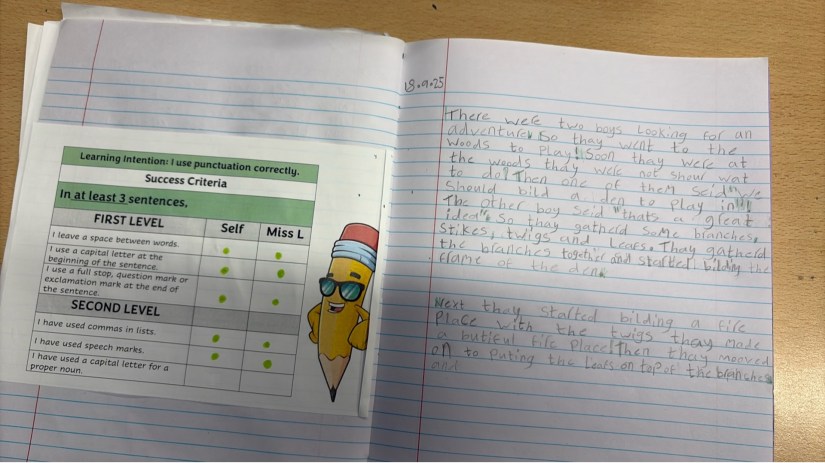 Learning Intention: I use punctuation correctly.
Success Criteria
In at least 3 sentences,
FIRST LEVEL Self Miss L
I leave a space between words.
I use a capital letter at the
beginning of the sentence.
I use a full stop, question mark or
exclamation mark at the end of
the sentence.
SECOND LEVEL
I have used commas in lists.
I have used speech marks.
I have used a capital letter for a
proper noun.
18.9.25
There were two boys Looking for an
adventure. So thay went to the
woods to play! Soon thay were at
the woods thay were not shour wat
to do! Then one of them seid "we
should bild a den to play in!"
The other boy seid "thats a great
idea". So thay gatherd some branches,
stikes, twigs and Leafs. Thay gatherd
the branches together and started bilding the
frame of the den.
Next thay started bilding a fire
Place with the twigs thay made
a butiful fire place! Then thay mooved
on to puting the Leafs on top of the branshes
and